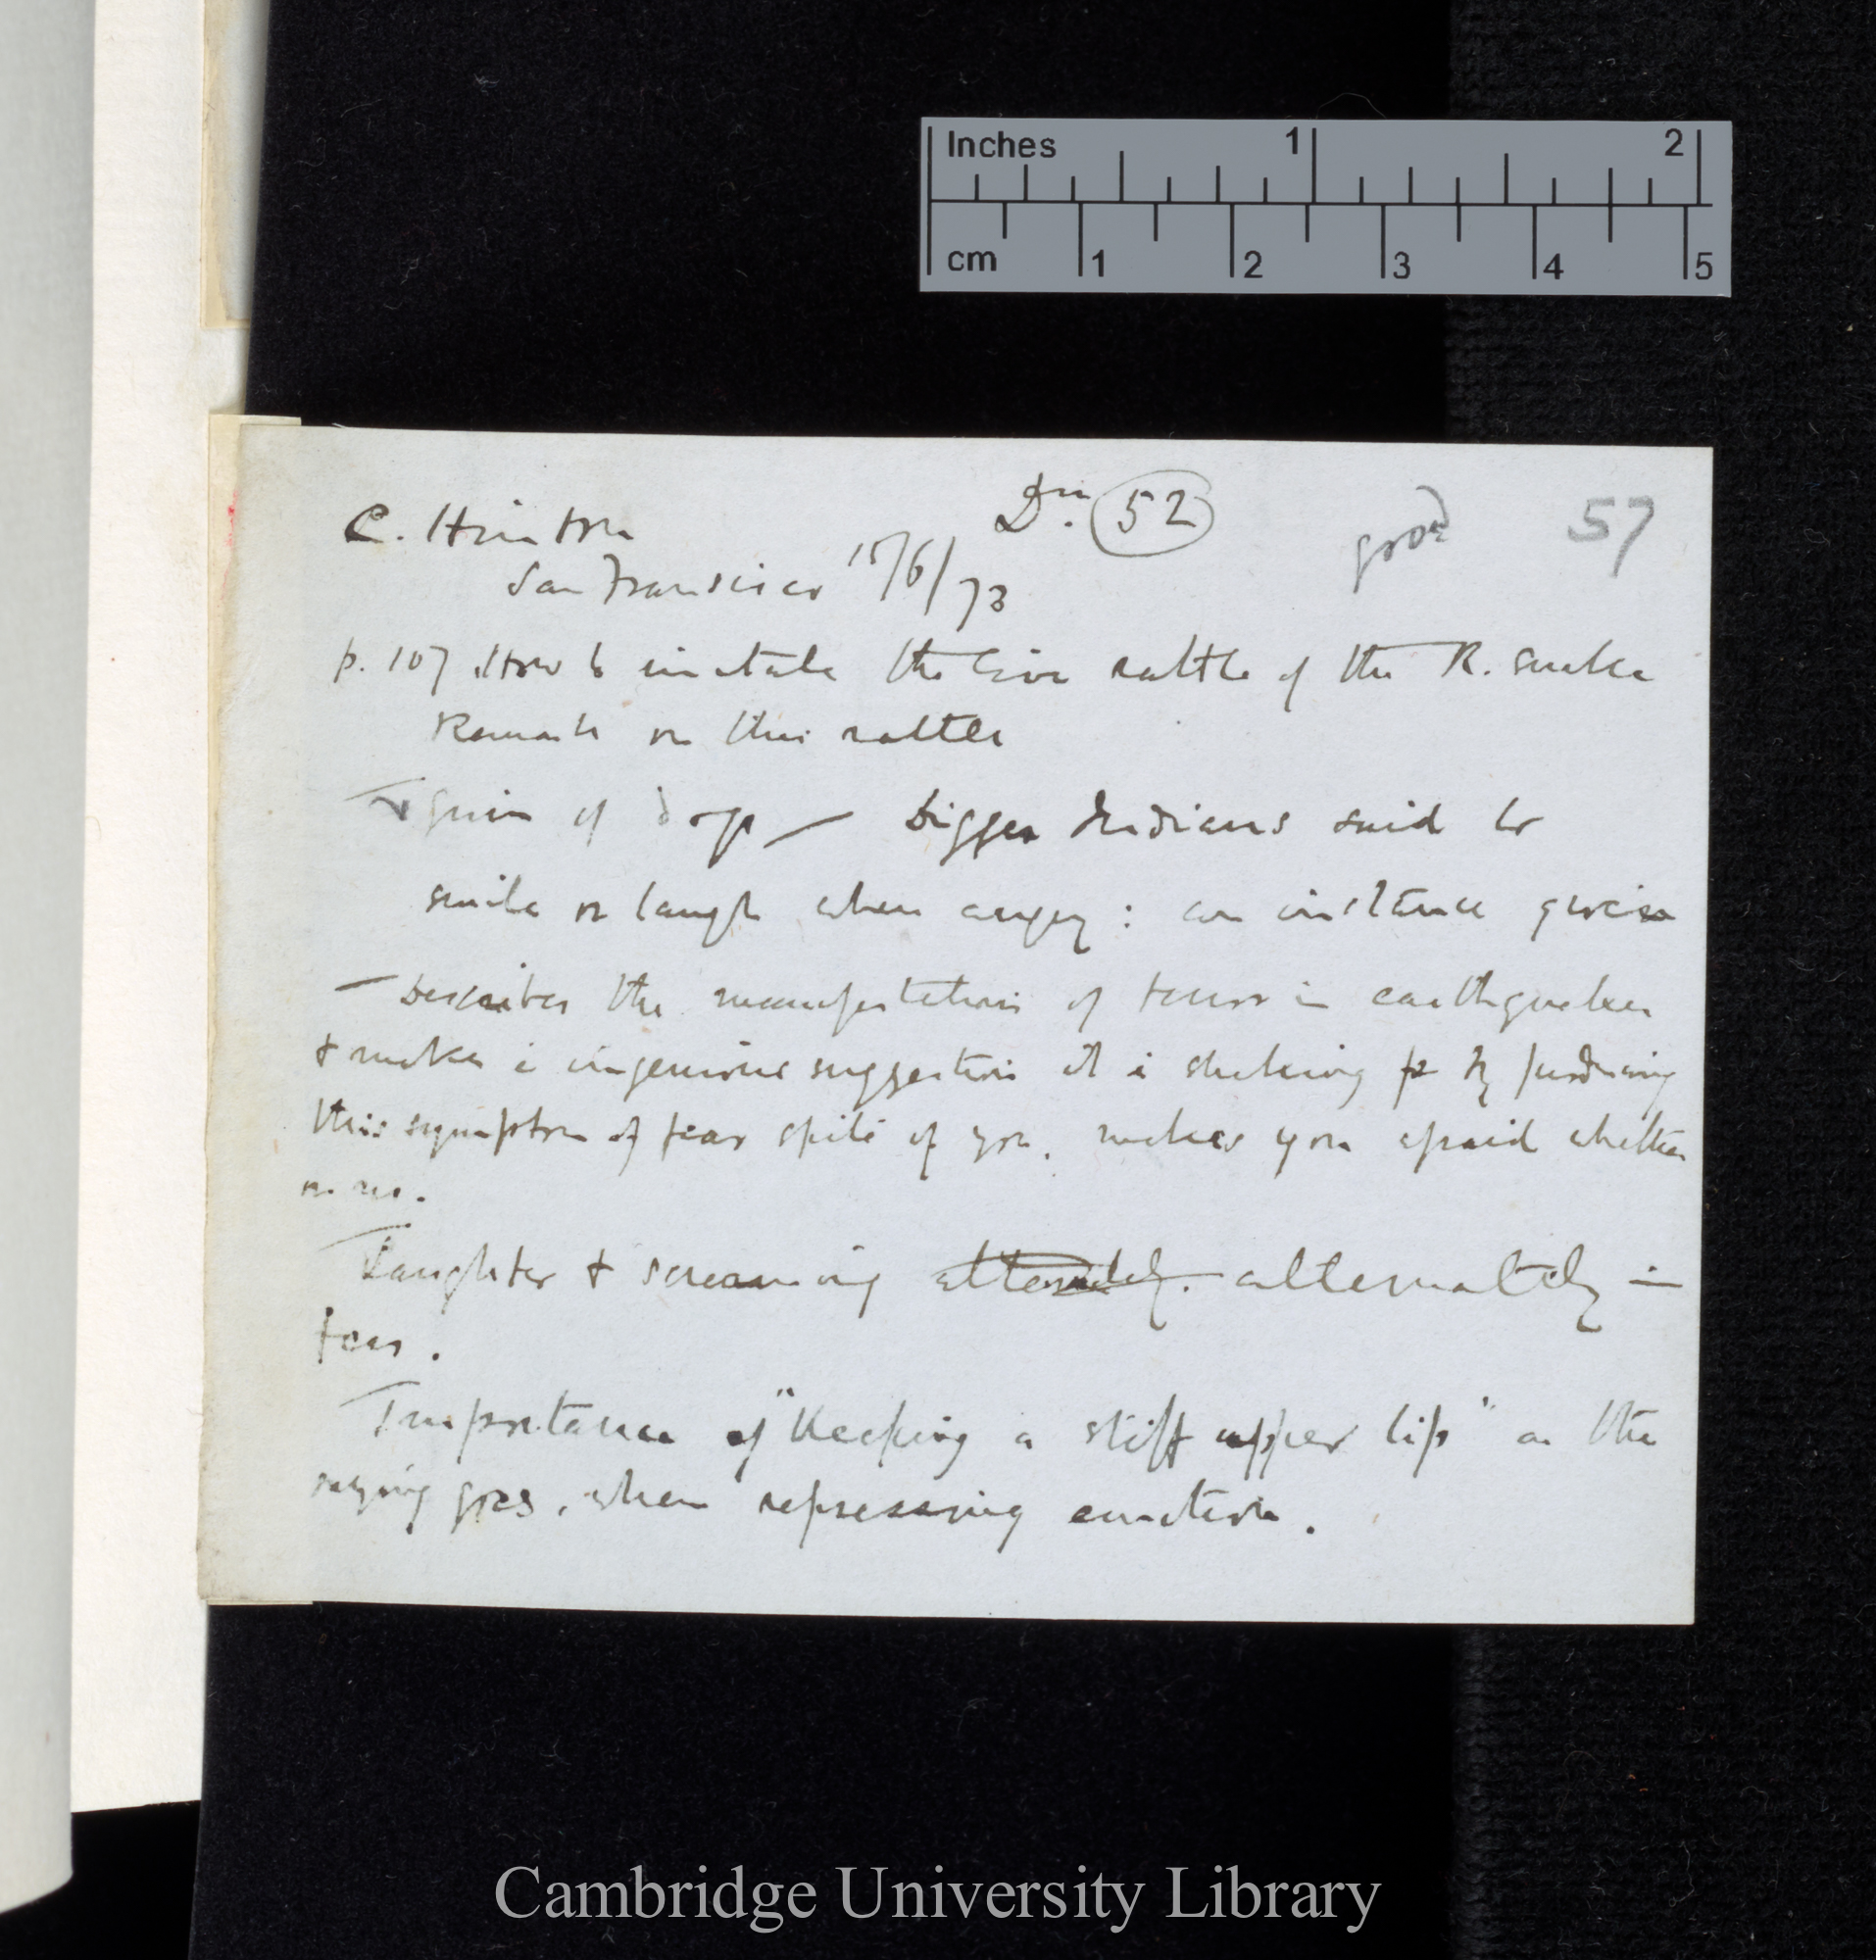 Inches 1 2
cm 1 2 3 4 5
C. Hinton Dn. 52 good 57
San Francisco 15/6/73
p. 107. How to imitate the live rattle of the R. snake
Remarks on this rattle
Grin of dogs — Digger Indians said to
smile or laugh when angry : an instance given
— Describes the manifestations of terror in earthquakes
& makes ingenious suggestion it is shaking by producing
this symptom of fear spite of you, makes you afraid whether
or no.
Laughter & screaming alternately. alternately in
fear.
Importance of "keeping a stiff upper lip" as the
saying goes, when repressing emotion.
Cambridge University Library